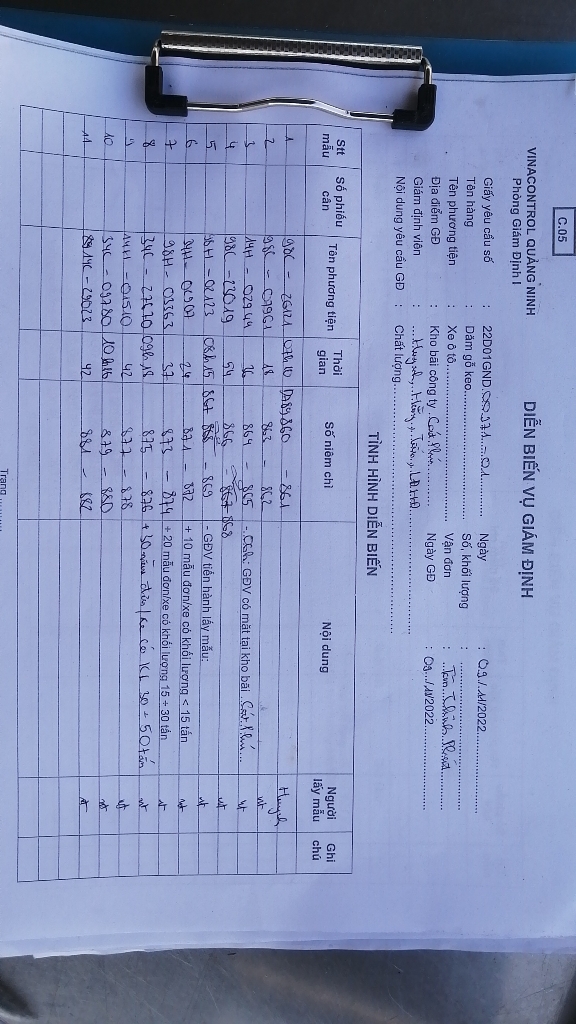 C.05
VINACONTROL QUẢNG NINH
Phòng Giám Định I
DIỄN BIẾN VỤ GIÁM ĐỊNH
Giấy yêu cầu số : 22D01GND 00971-01 Ngày : 09/11/2022
Tên hàng : Dăm gỗ keo Số, khối lượng :
Tên phương tiện : Xe ô tô Vận đơn : Tân Thành Phát
Địa điểm GĐ : Kho bãi công ty Cát Phú Ngày GĐ : 09/11/2022
Giám định viên : Huynh, Hùng, Tân,
Nội dung yêu cầu GĐ : Chất lượng
TÌNH HÌNH DIỄN BIẾN
Stt mẫu Số phiếu cân Tên phương tiện Thời gian Số niêm chì Nội dung Người lấy mẫu Ghi chú
1 98C - 26121 07h10 860 - 861 Huynh
2 98C - 07961 18 863 - 862 nt
3 14H - 02949 36 864 - 865 - GĐV có mặt tại kho bãi Cát Phú nt
4 98C - 23019 54 866 - 868 nt
5 98H - 02123 08h15 867 - 869 - GĐV tiến hành lấy mẫu: nt
6 98H - 02907 24 871 - 872 + 10 mẫu đơn/xe có khối lượng < 15 tấn nt
7 98H - 03363 37 873 - 874 + 20 mẫu đơn/xe có khối lượng 15 ÷ 30 tấn nt
8 34C - 27670 09h18 875 - 876 + 30 mẫu đơn/xe có KL 30 ÷ 50 tấn nt
9 14H - 01510 42 877 - 878 nt
10 34C - 09780 10h16 879 - 880 nt
11 14C - 29023 42 881 - 882 nt
Trang